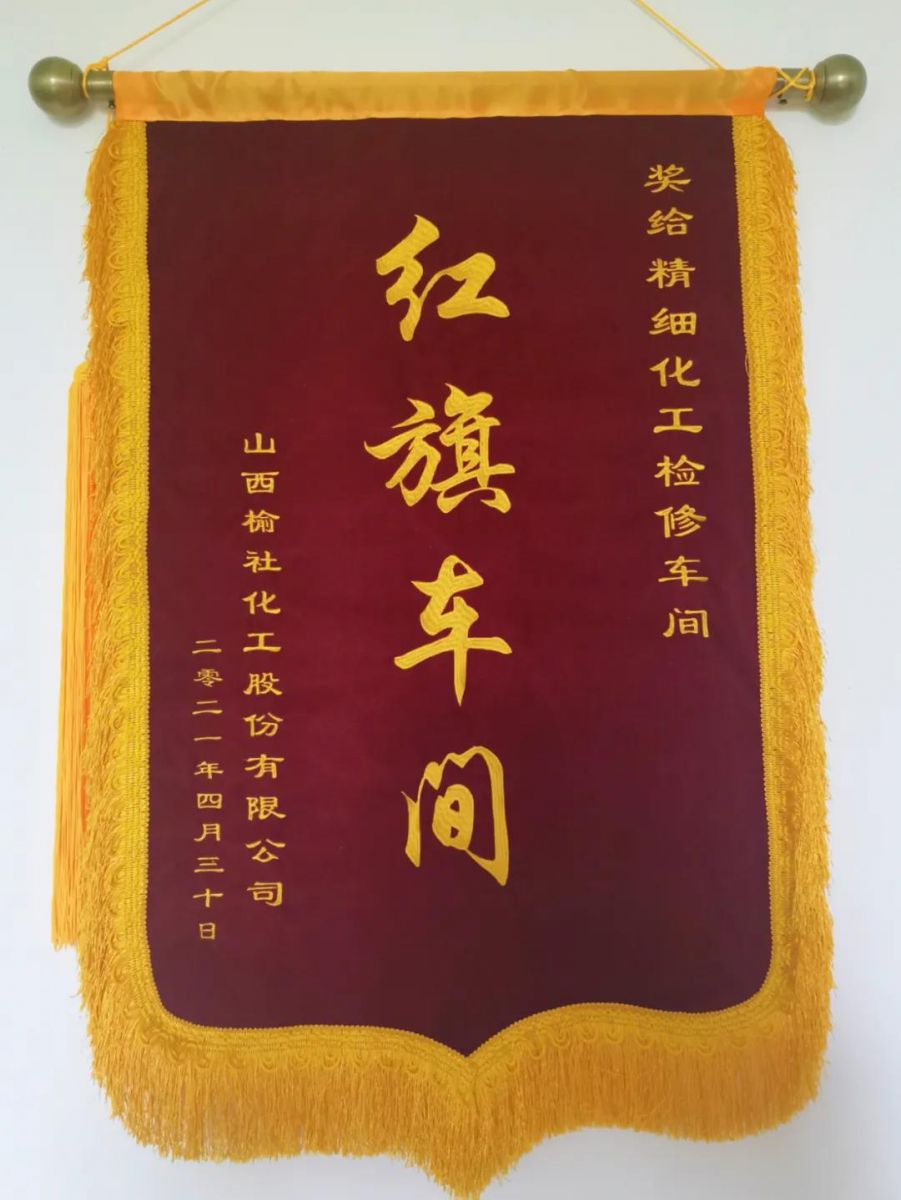 奖给精细化工检修车间
红旗车间
山西榆社化工股份有限公司
二零二一年四月三十日